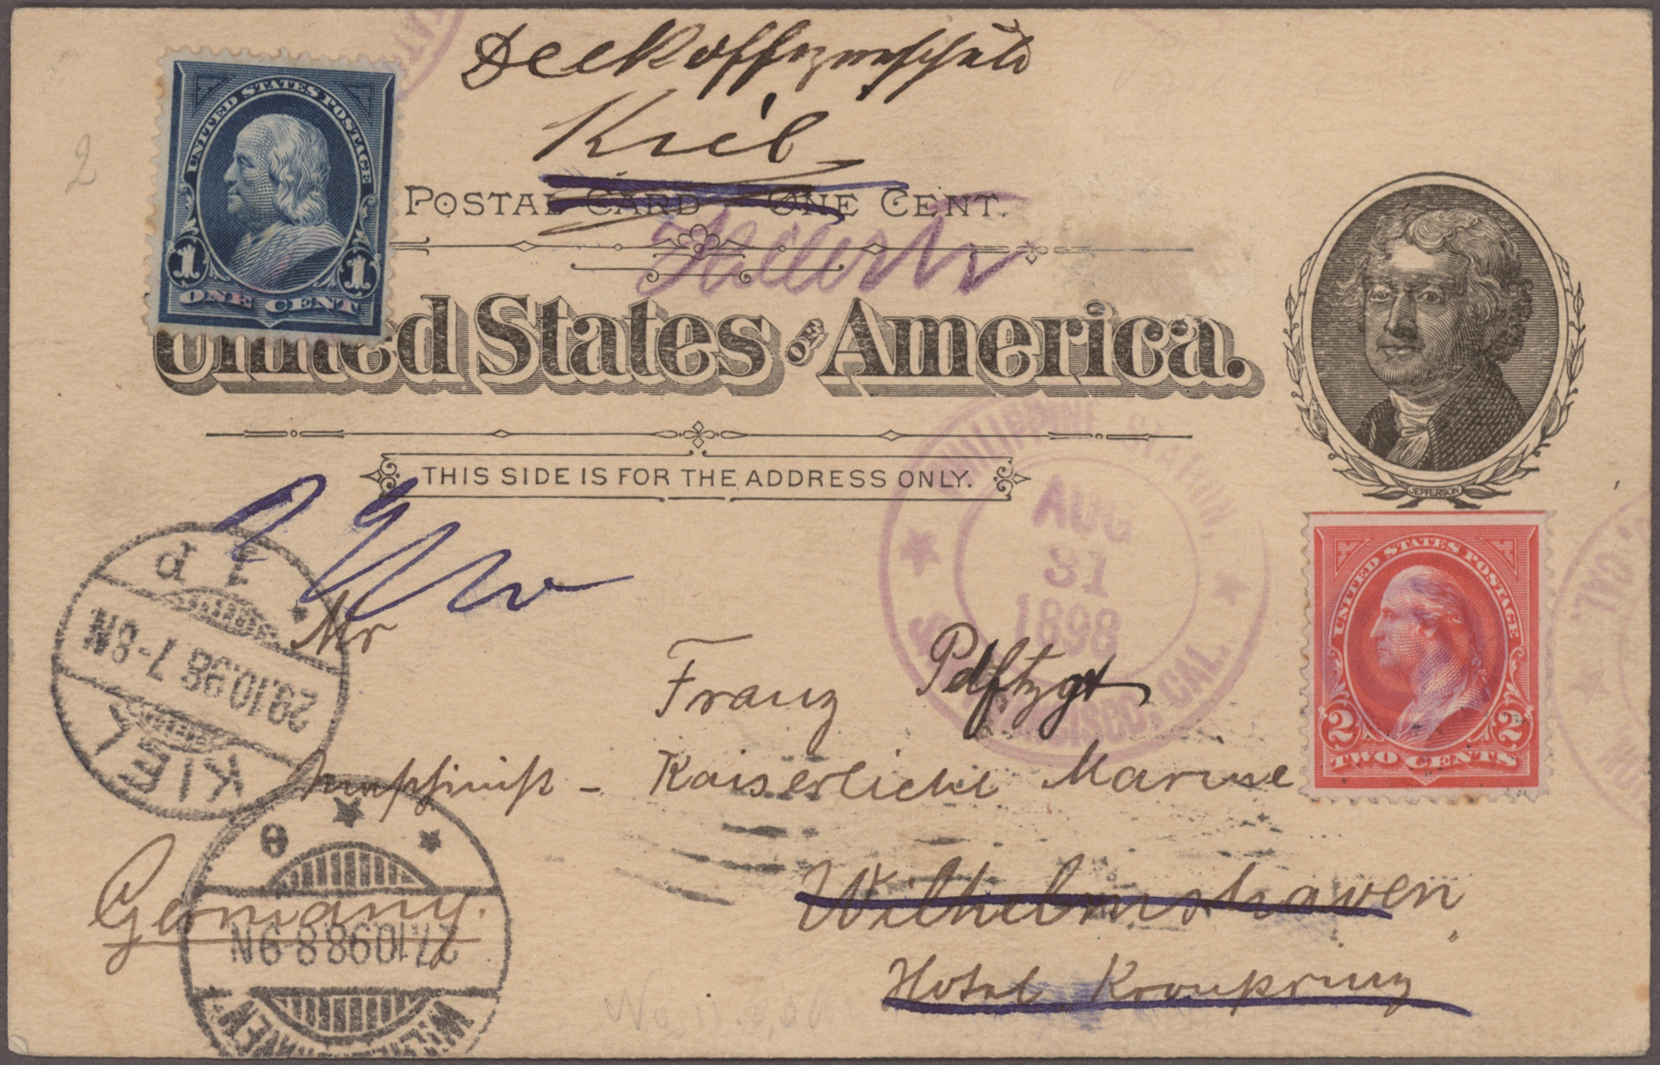 Deckoffizierschule
Kiel
2
UNITED STATES POSTAGE
1 1
ONE CENT
POSTAL CARD – ONE CENT.
United States OF America.
THIS SIDE IS FOR THE ADDRESS ONLY.
JEFFERSON
PHILIPPINE STATION,
AUG
31
1898
SAN FRANCISCO, CAL.
UNITED STATES POSTAGE
2 2
TWO CENTS
CAL.
KIEL
29.10.98 7-8N
Mr
Franz
Kaiserliche Marine
Wilhelmshaven
Germany.
Hotel Kronprinz
27.10.98 8-9N
WILHELMSHAVEN